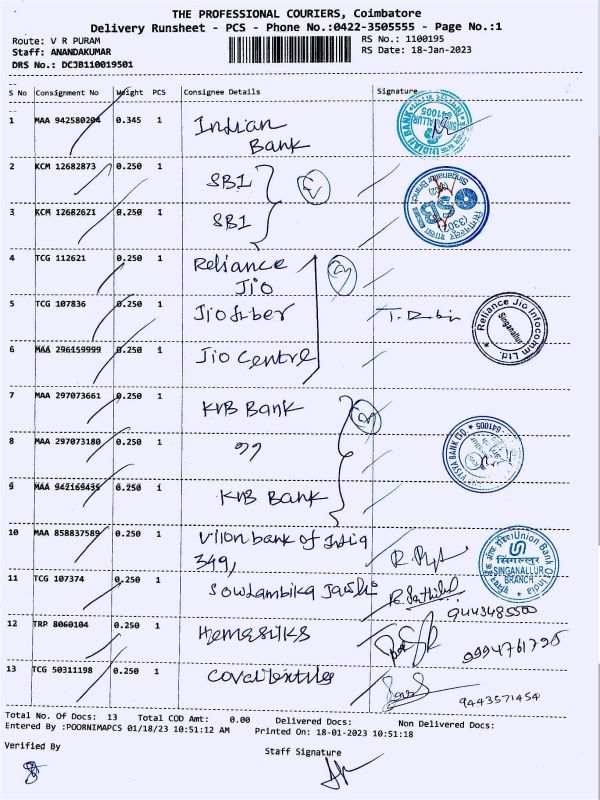 THE PROFESSIONAL COURIERS, Coimbatore
Delivery Runsheet - PCS - Phone No.:0422-3505555 - Page No.:1
Route: V R PURAM RS No.: 1100195
Staff: ANANDAKUMAR RS Date: 18-Jan-2023
DRS No.: DCJB110019501
S No Consignment No Weight PCS Consignee Details Signature
1 MAA 942580204 0.345 1 Indian
Bank
INDIAN BANK SINGANALLUR 641005
2 KCM 12682873 0.250 1 SBI
3 KCM 12682621 0.250 1 SBI
SBI Singanallur Branch
4 TCG 112621 0.250 1 Reliance
Jio
5 TCG 107836 0.250 1 Jio fiber
Reliance Jio Infocomm Ltd.
Singanallur
6 MAA 296159999 0.250 1 Jio Centre
7 MAA 297073661 0.250 1 KVB Bank
8 MAA 297073180 0.250 1 "
VYSYA BANK LTD 641005
9 MAA 942169435 0.250 1
KVB Bank
10 MAA 858837589 0.250 1 Union bank of India
349,
Union Bank Of India
सिंगनल्लुर
SINGANALLUR
BRANCH
11 TCG 107374 0.250 1 Soudambika
9443485500
12 TRP 8060104 0.250 1 Hemasilks
9994761795
13 TCG 50311198 0.250 1
9443571454
Total No. Of Docs: 13 Total COD Amt: 0.00 Delivered Docs: Non Delivered Docs:
Entered By :POORNIMAPCS 01/18/23 10:51:12 AM Printed On: 18-01-2023 10:51:18
Verified By Staff Signature